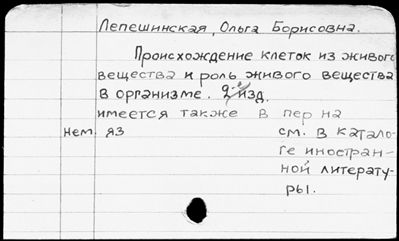 Лепешинская, Ольга Борисовна.
Происхождение клеток из живого
вещества и роль живого вещества
в организме. 2-е изд.
имеется также в пер на
нем. яз см. в катало-
ге иностран-
ной литерату-
ры.